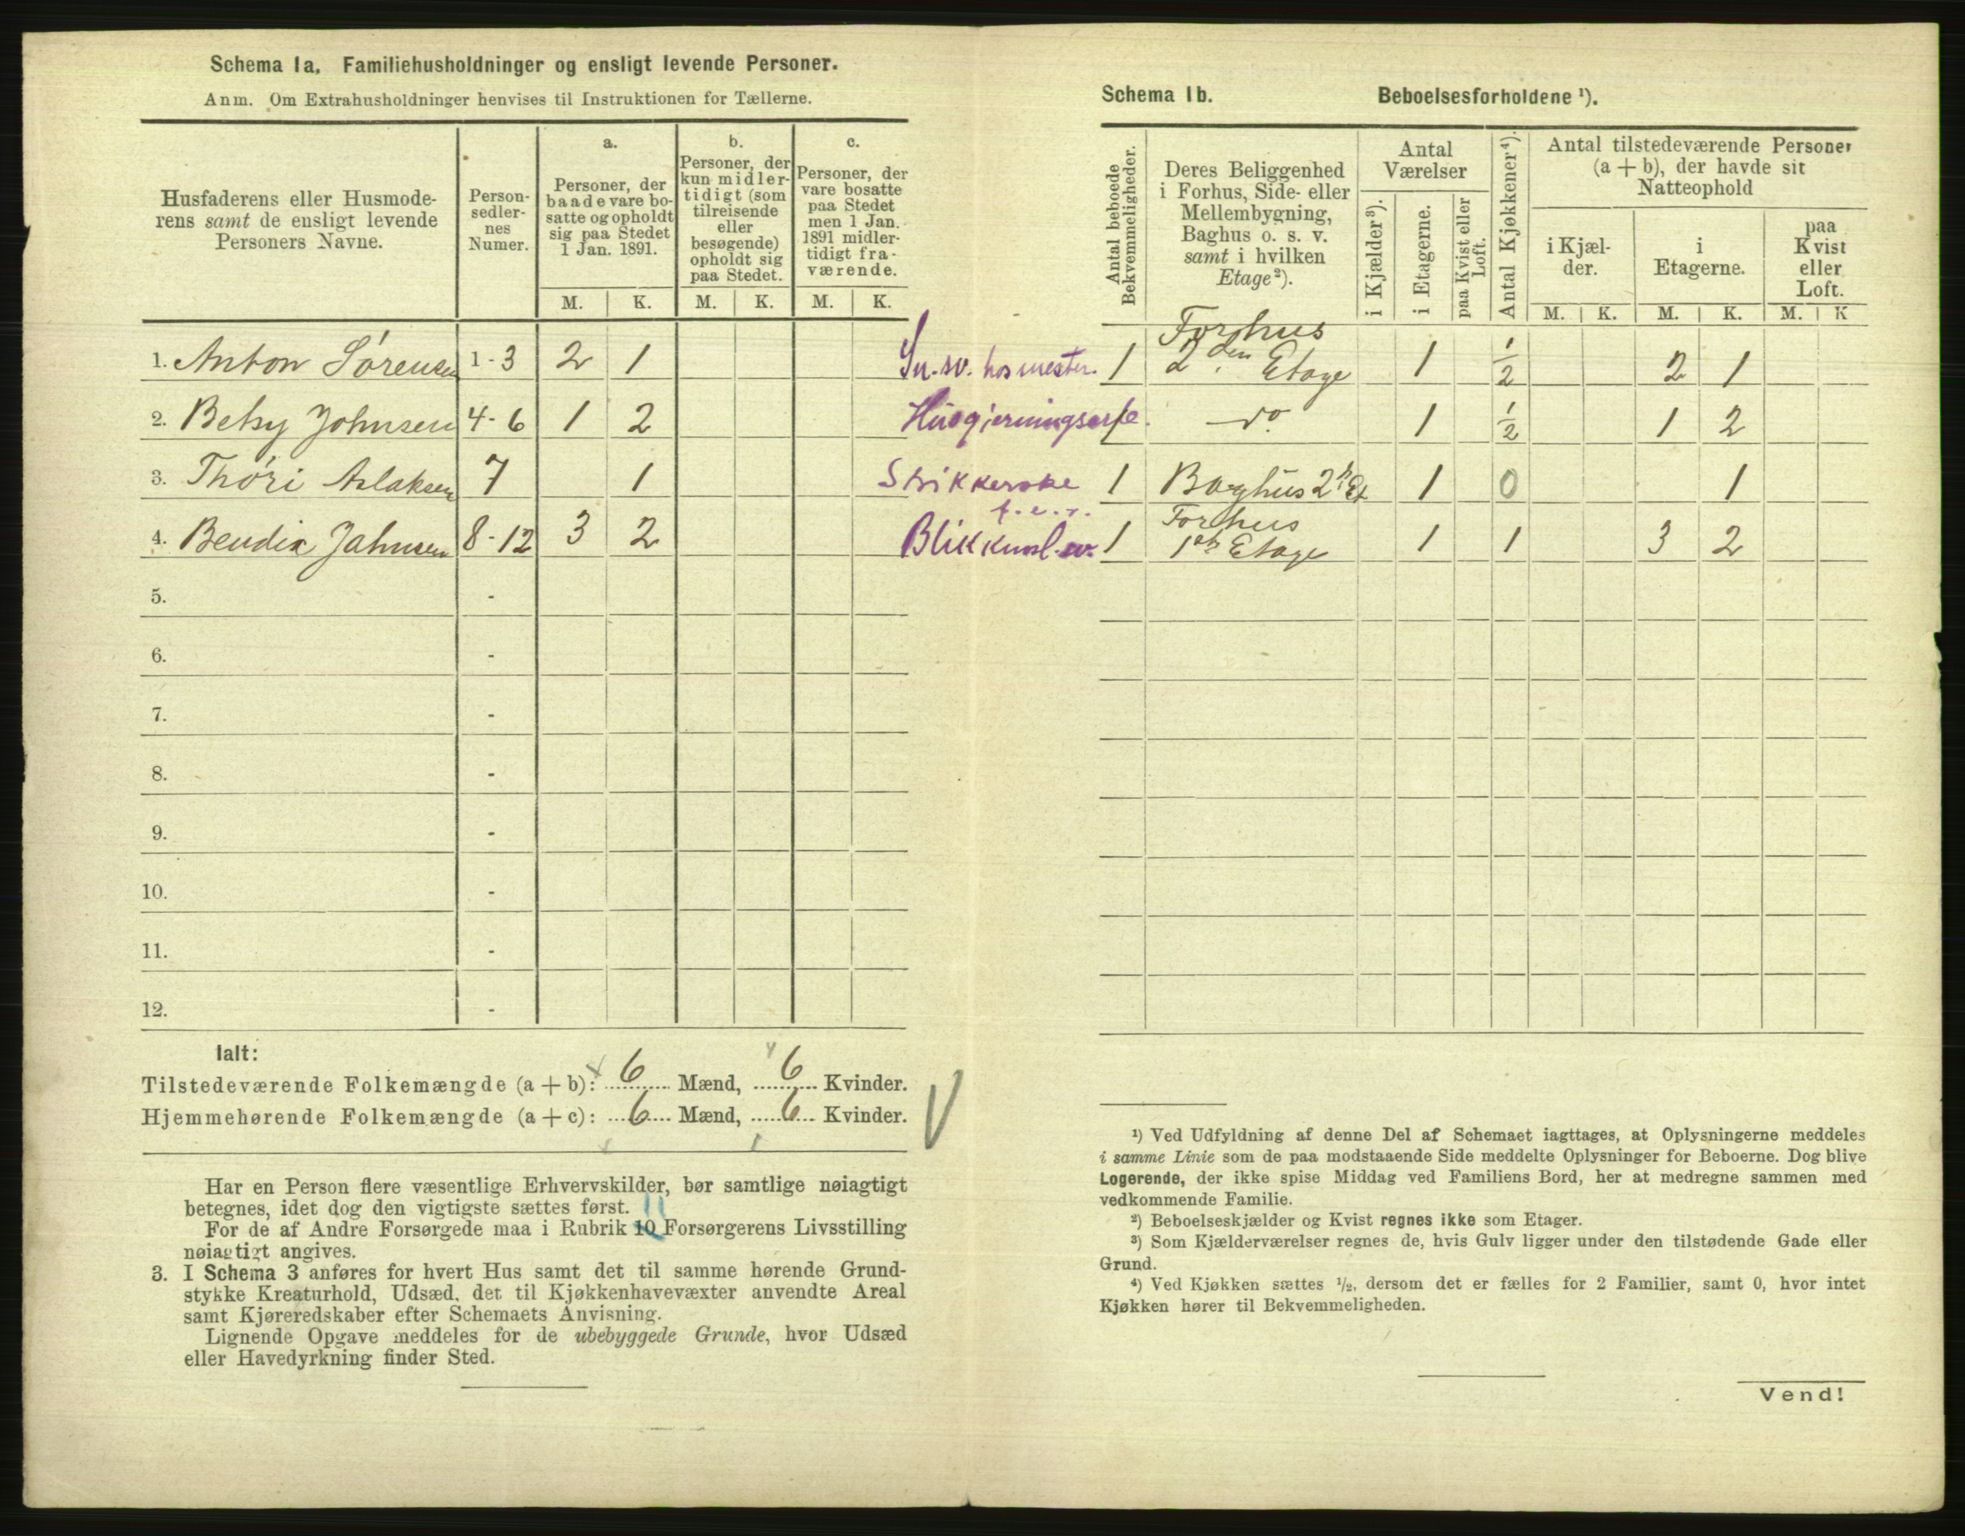 Schema 1a. Familiehusholdninger og ensligt levende Personer.
Anm. Om Extrahusholdninger henvises til Instruktionen for Tællerne.
Husfaderens eller Husmode-
rens samt de ensligt levende
Personers Navne.
Person-
sedler-
nes
Numer.
a.
Personer, der
baade vare bo-
satte og opholdt
sig paa Stedet
1 Jan. 1891.
b.
Personer, der
kun midler-
tidigt (som
tilreisende
eller
besøgende)
opholdt sig
paa Stedet.
c.
Personer, der
vare bosatte
paa Stedet
men 1 Jan.
1891 midler-
tidigt fra-
værende.
M. K. M. K. M. K.
1. Anton Sørensen 1-3 2 1
2. Betsy Johnsen 4-6 1 2
3. Thóri Aslaksen 7 1
4. Bendix Jahnsen 8-12 3 2
5. -
6. -
7. -
8. -
9. -
10. -
11. -
12. -
Ialt:
Tilstedeværende Folkemængde (a + b): 6 Mænd, 6 Kvinder.
Hjemmehørende Folkemængde (a + c): 6 Mænd, 6 Kvinder.
Har en Person flere væsentlige Erhvervskilder, bør samtlige nøiagtigt
betegnes, idet dog den vigtigste sættes først.
11
For de af Andre Forsørgede maa i Rubrik 10 Forsørgerens Livsstilling
nøiagtigt angives.
3. I Schema 3 anføres for hvert Hus samt det til samme hørende Grund-
stykke Kreaturhold, Udsæd, det til Kjøkkenhavevæxter anvendte Areal
samt Kjøreredskaber efter Schemaets Anvisning.
Lignende Opgave meddeles for de ubebyggede Grunde, hvor Udsæd
eller Havedyrkning finder Sted.
Schema 1b. Beboelsesforholdene ¹).
Antal beboede
Bekvemmeligheder.
Deres Beliggenhed
i Forhus, Side- eller
Mellembygning,
Baghus o. s. v.
samt i hvilken
Etage²).
Antal
Værelser
i Kjælder³).
i Etagerne.
paa Kvist eller
Loft.
Antal Kjøkkener⁴).
Antal tilstedeværende Personer
(a + b), der havde sit
Natteophold
i Kjæl-
der.
i
Etagerne.
paa
Kvist
eller
Loft.
M. K. M. K. M. K
Sn.sv. hos mester. 1 Forhus
2den Etage 1 1/2 2 1
1 do 1 1/2 1 2
1 Baghus 2 Et 1 0 1
f.e.r.
Blikkensl.sv. 1 Forhus
1ste Etage 1 1 3 2
¹) Ved Udfyldning af denne Del af Schemaet iagttages, at Oplysningerne meddeles
i samme Linie som de paa modstaaende Side meddelte Oplysninger for Beboerne. Dog blive
Logerende, der ikke spise Middag ved Familiens Bord, her at medregne sammen med
vedkommende Familie.
²) Beboelseskjælder og Kvist regnes ikke som Etager.
³) Som Kjælderværelser regnes de, hvis Gulv ligger under den tilstødende Gade eller
Grund.
⁴) Ved Kjøkken sættes ½, dersom det er fælles for 2 Familier, samt 0, hvor intet
Kjøkken hører til Bekvemmeligheden.
Vend!